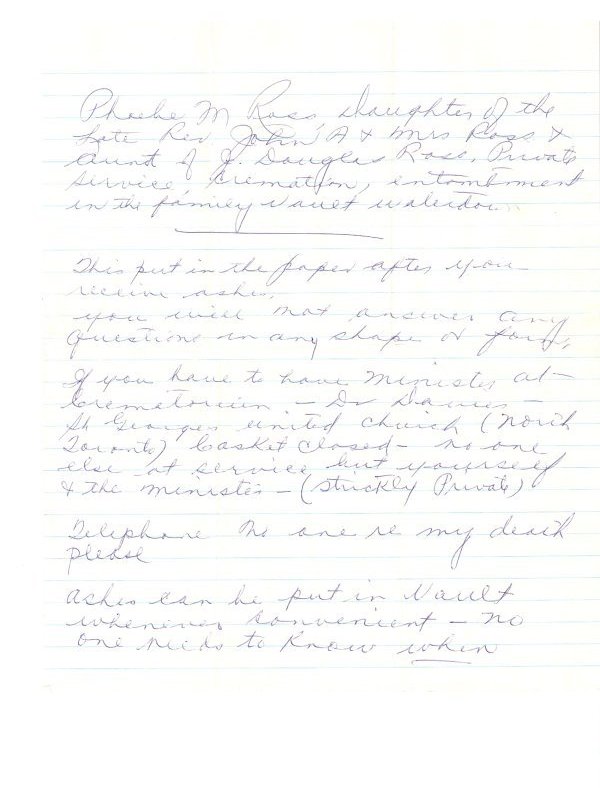 Phoebe M Ross, Daughter of the
Late Rev John A & Mrs Ross &
Aunt of J. Douglas Ross, Private
Service, Cremation, entombment
in the family Vault
This put in the paper after you
receive ashes.
you will not answer any
questions in any shape or form.
If you have to have Minister at
Crematorium - Dr Davies -
St Georges united church (North
Toronto) Casket Closed - no one
else at service but yourself
& the minister - (Stricktly Private)
Telephone no one re my death
please
Ashes can be put in Vault
whenever convenient - no
one needs to know when